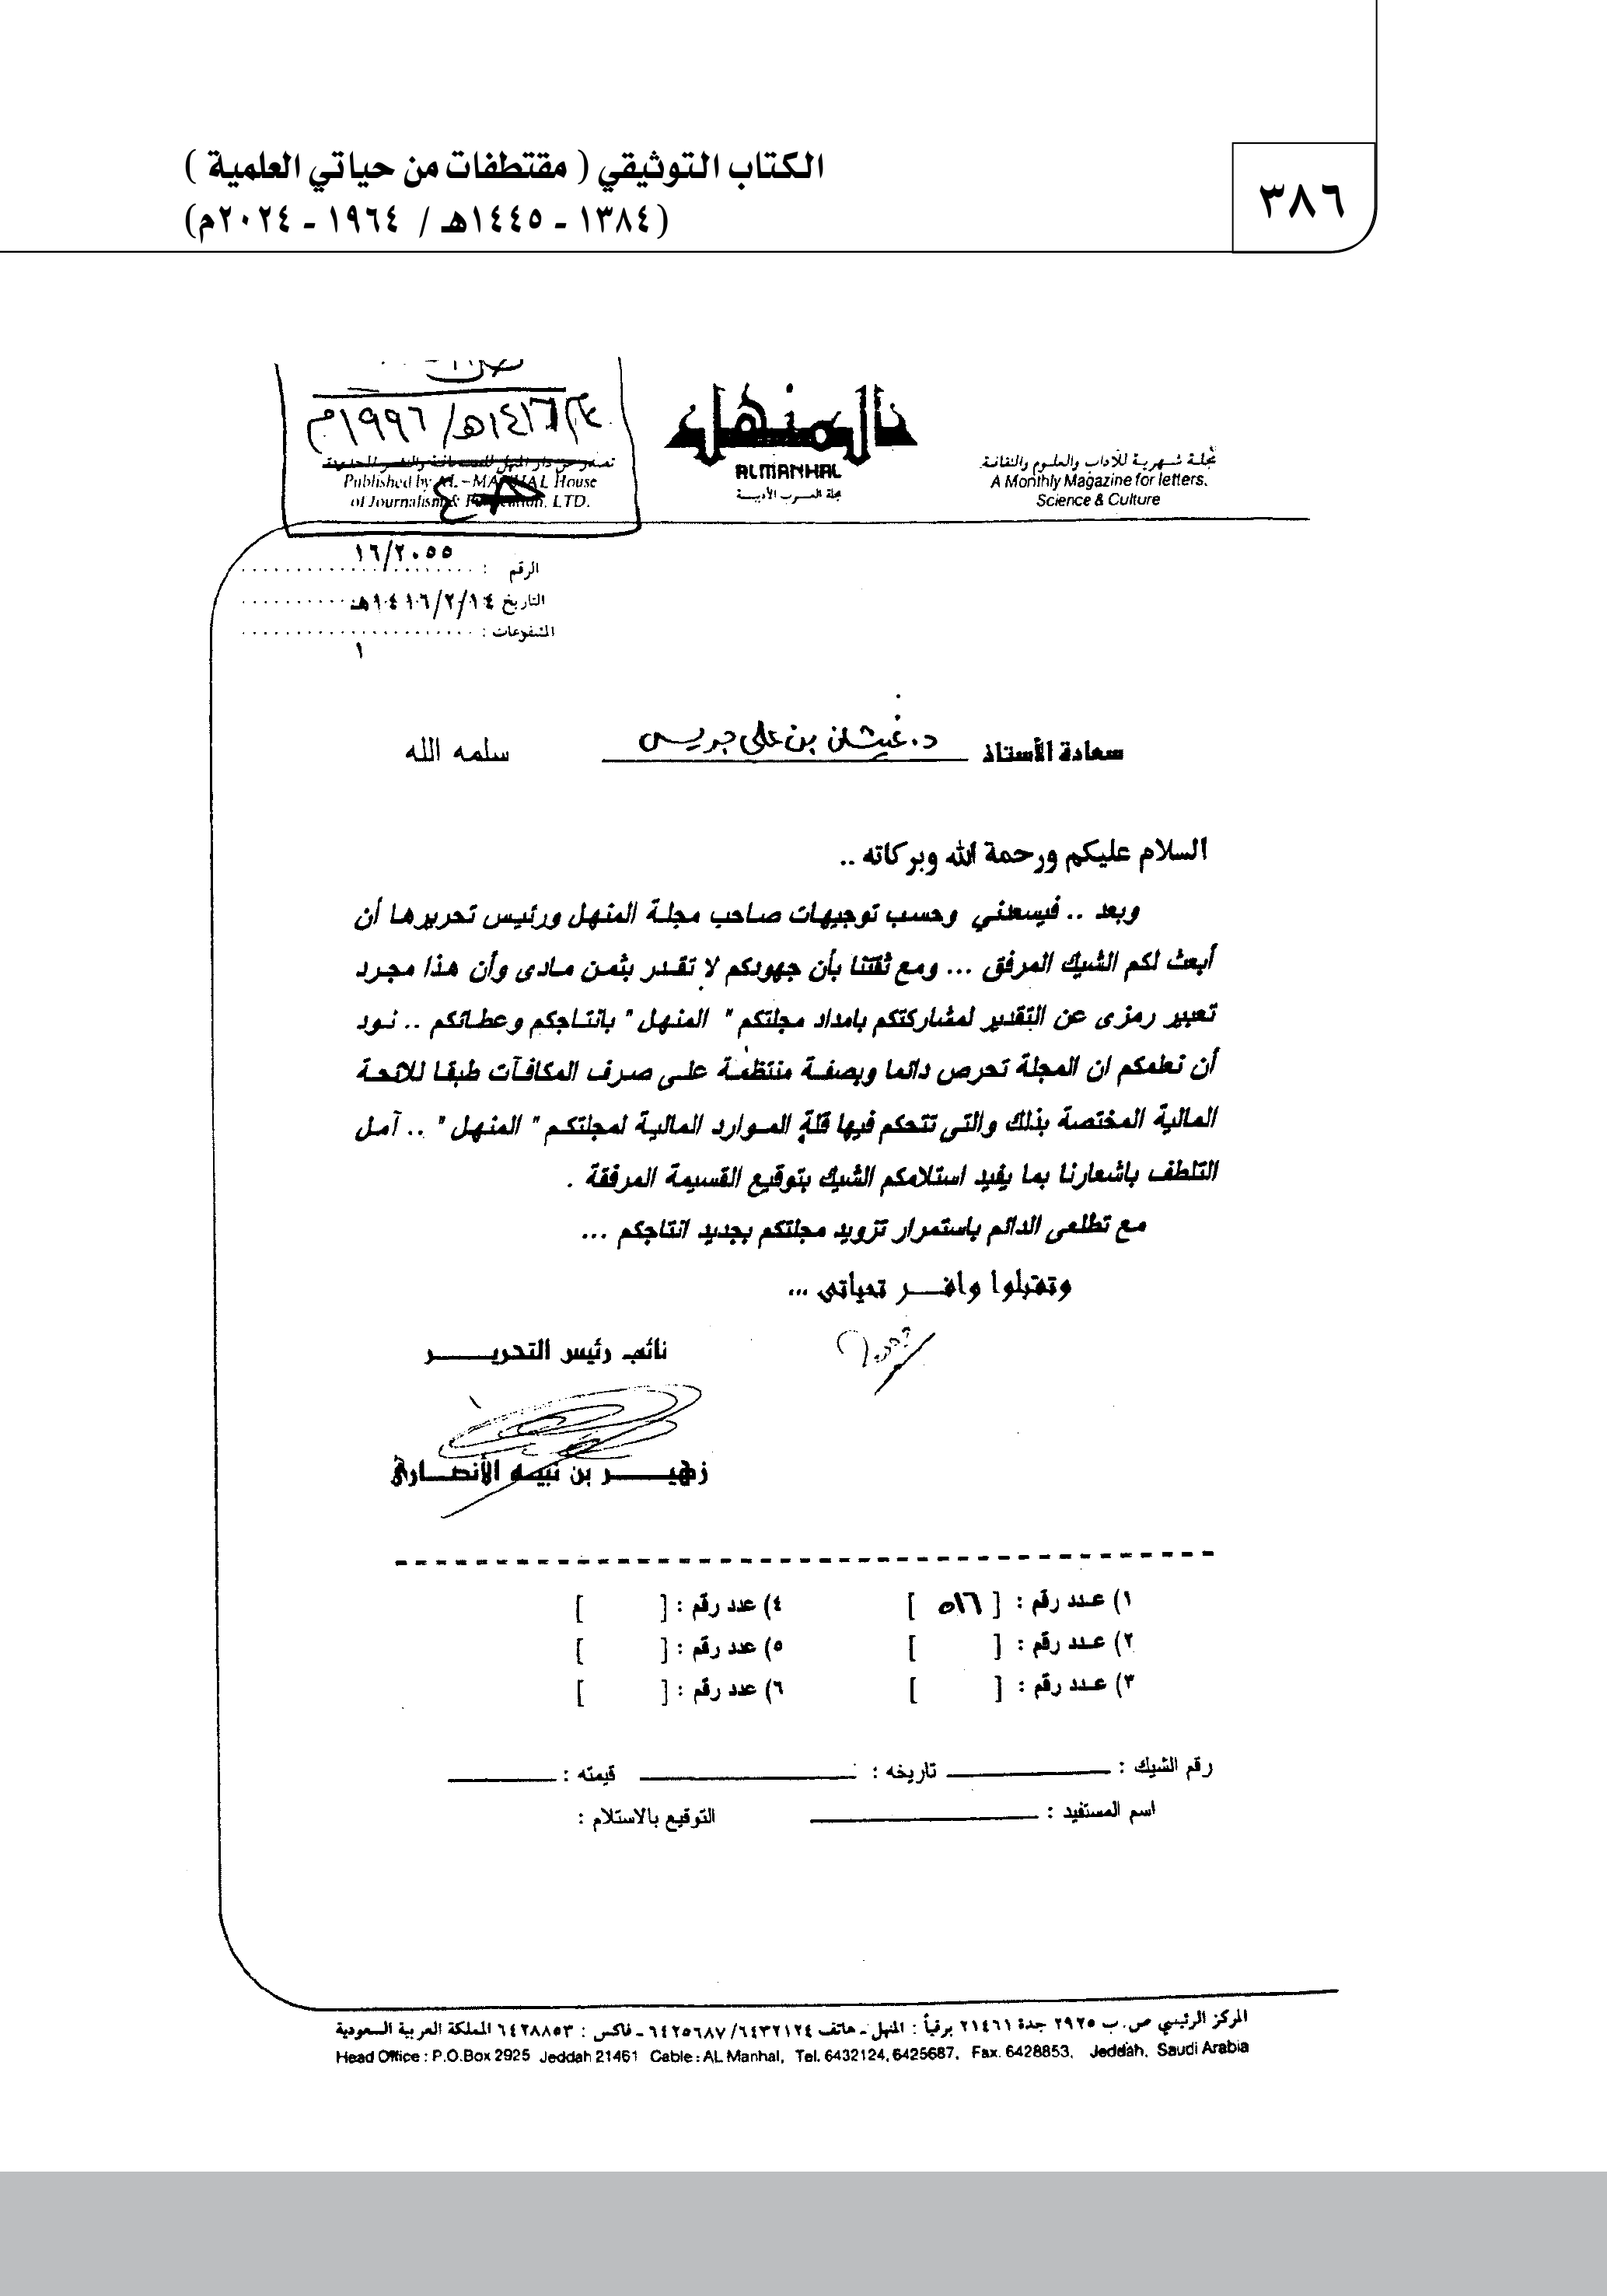 ٣٨٦
الكتاب التوثيقي ( مقتطفات من حياتي العلمية )
(١٣٨٤ ـ ١٤٤٥هـ / ١٩٦٤ ـ ٢٠٢٤م)
١٤١٦هـ/١٩٩٦م
المنهل
ALMANHAL
مجلة العرب الأدبية
مجلة شهرية للآداب والعلوم والثقافة
A Monthly Magazine for letters.
Science & Culture
تصدر عن دار المنهل للصحافة والنشر المحدودة
Published by AL-MANHAL House
of Journalism & Publication. LTD.
الرقم : ١٦/٢٠٥٥
التاريخ ١٤١٦/٢/١٤هـ
المشفوعات :
١
سعادة الأستاذ د. غيثان بن علي جريس سلمه الله
السلام عليكم ورحمة الله وبركاته ..
وبعد .. فيسعدني وحسب توجيهات صاحب مجلة المنهل ورئيس تحريرها أن
أبعث لكم الشيك المرفق ... ومع ثقتنا بأن جهودكم لا تقدر بثمن مادى وأن هذا مجرد
تعبير رمزى عن التقدير لمشاركتكم بامداد مجلتكم " المنهل " بانتاجكم وعطائكم .. نود
أن نعلمكم ان المجلة تحرص دائما وبصفة منتظمة على صرف المكافآت طبقا للائحة
المالية المختصة بذلك والتى تتحكم فيها قلة الموارد المالية لمجلتكم " المنهل " .. آمل
التلطف باشعارنا بما يفيد استلامكم الشيك بتوقيع القسيمة المرفقة .
مع تطلعى الدائم باستمرار تزويد مجلتكم بجديد انتاجكم ...
وتقبلوا وافر تحياتى ...
نائب رئيس التحرير
زهير بن نبيه الأنصارى
١) عدد رقم : [ ٥١٦ ] ٤) عدد رقم : [ ]
٢) عدد رقم : [ ] ٥) عدد رقم : [ ]
٣) عدد رقم : [ ] ٦) عدد رقم : [ ]
رقم الشيك : تاريخه : قيمته :
اسم المستفيد : التوقيع بالاستلام :
المركز الرئيسي ص. ب ٢٩٢٥ جدة ٢١٤٦١ برقياً : المنهل ـ هاتف ٦٤٣٢١٢٤/ ٦٤٢٥٦٨٧ ـ فاكس : ٦٤٢٨٨٥٣ المملكة العربية السعودية
Head Office : P.O.Box 2925 Jeddah 21461 Cable : AL Manhal, Tel. 6432124, 6425687, Fax. 6428853, Jeddah, Saudi Arabia